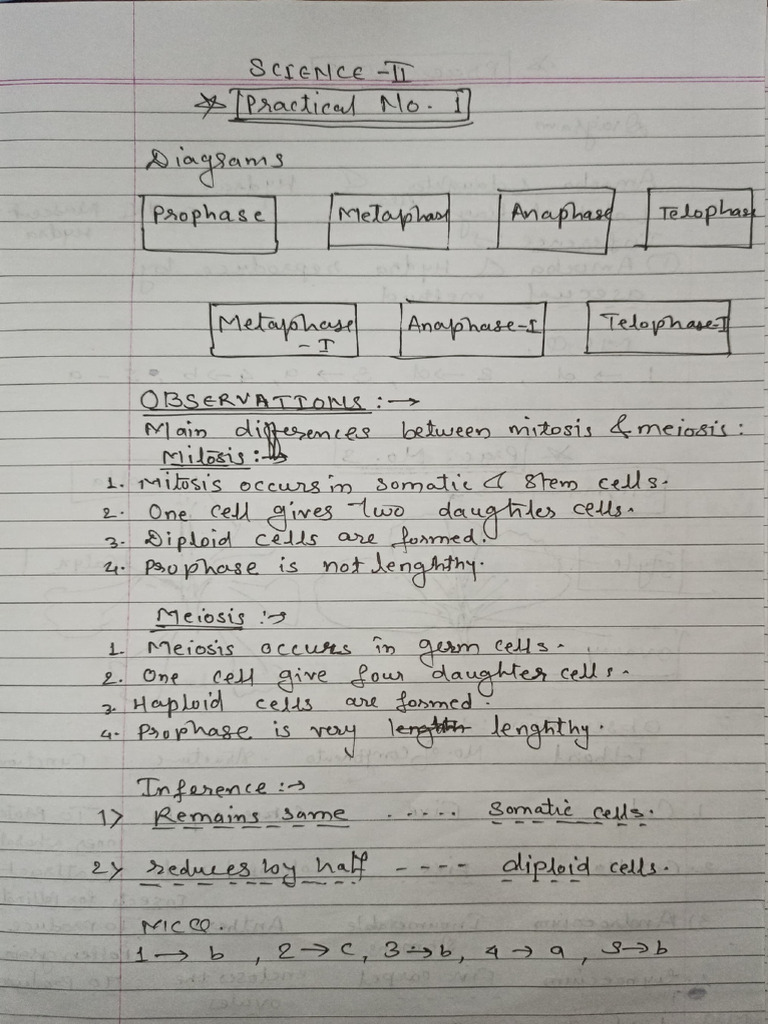 SCIENCE - II
Practical No. 1
Diagrams
Prophase Metaphase Anaphase Telophase
Metaphase - I Anaphase-I Telophase-I
OBSERVATIONS :→
Main differences between mitosis & meiosis :
Mitosis :→
1. Mitosis occurs in somatic & stem cells.
2. One cell gives two daughter cells.
3. Diploid cells are formed.
4. Prophase is not lenghthy.
Meiosis :→
1. Meiosis occurs in germ cells.
2. One cell give four daughter cells.
3. Haploid cells are formed.
4. Prophase is very lenghthy.
Inference :→
1> Remains same ..... somatic cells.
2> reduces by half ---- diploid cells.
MCQ.
1 → b , 2 → c, 3 → b, 4 → a, 5 → b